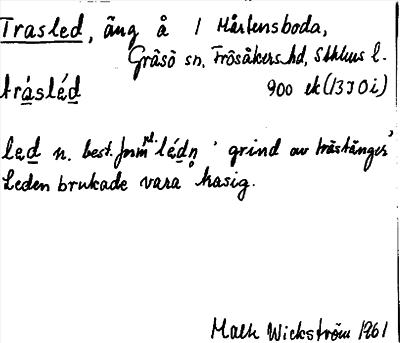 Trasled, äng å 1 Mårtensboda,
Gräsö sn, Frösåkers hd, Sthlms l.
trásléd 900 ek (13 J 0 i)
led n. best. form pl. lédn 'grind av trästänger'
Leden brukade vara trasig.
Maeh Wickström 1961